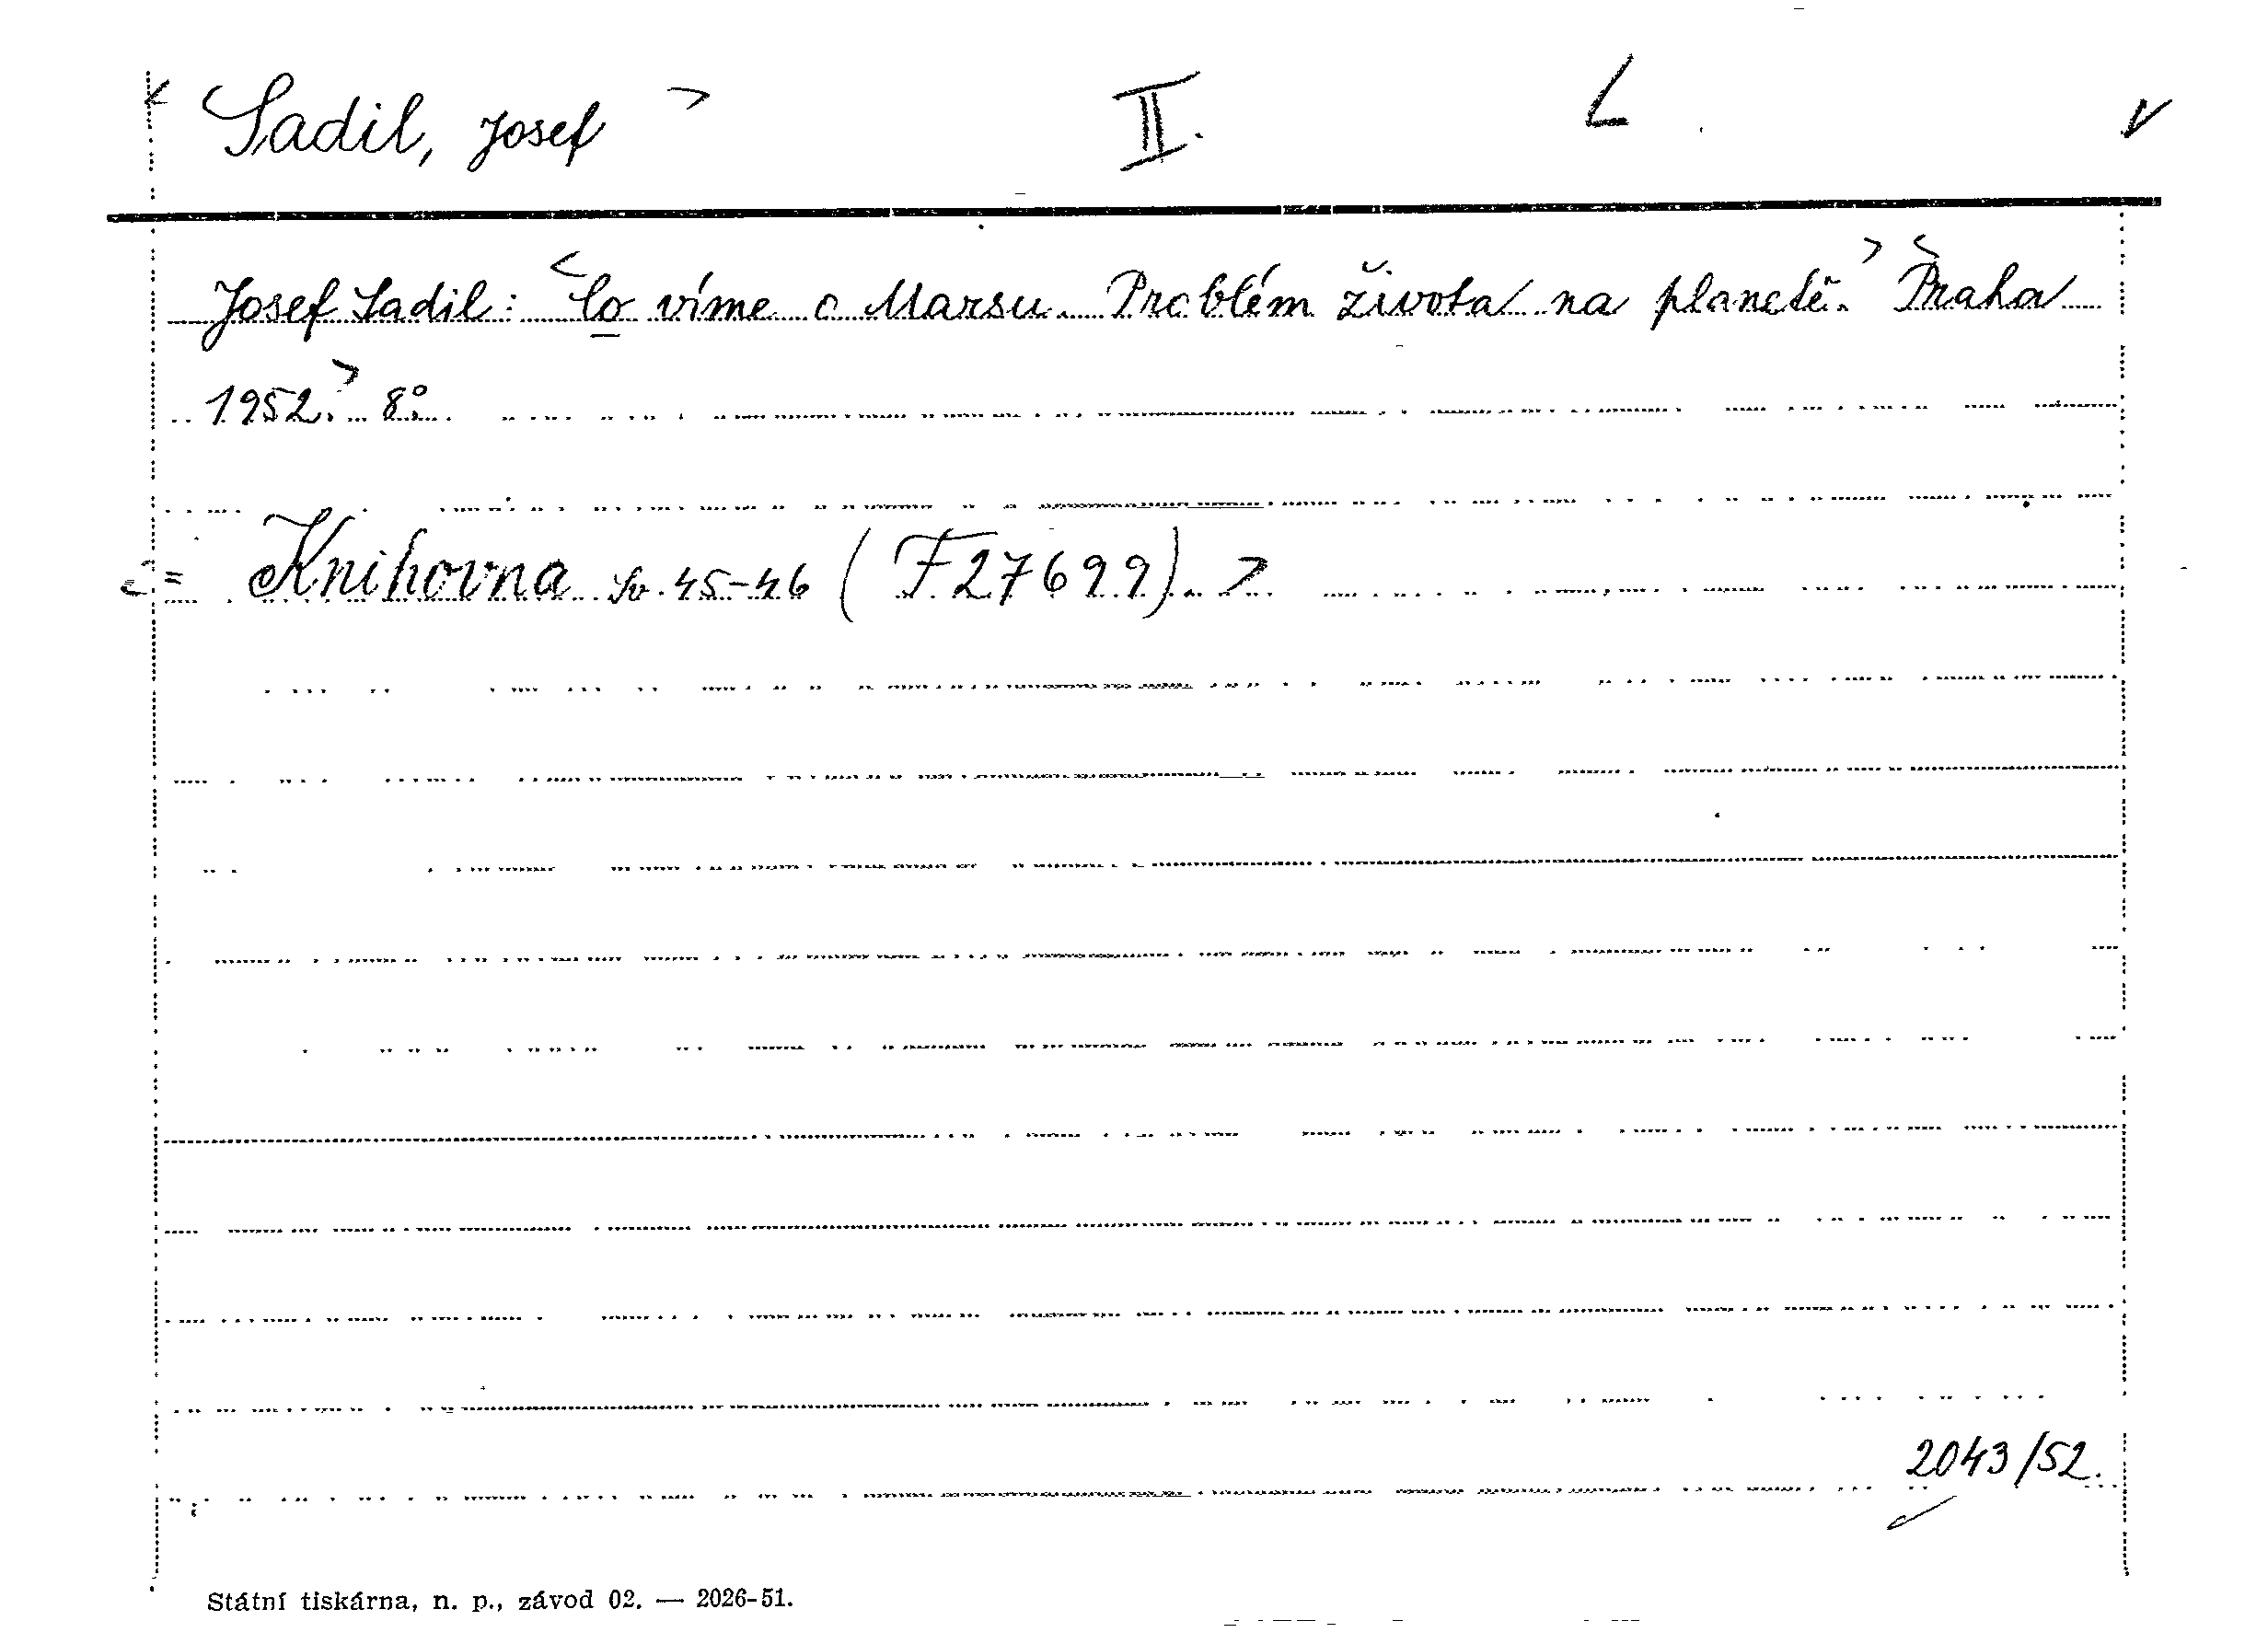 Sadil, Josef II. L
Josef Sadil: Co víme o Marsu. Problém života na planetě. Praha
1952. 8°.
= Knihovna sv. 45-46 (F27699).
2043/52.
Státní tiskárna, n. p., závod 02. — 2026-51.